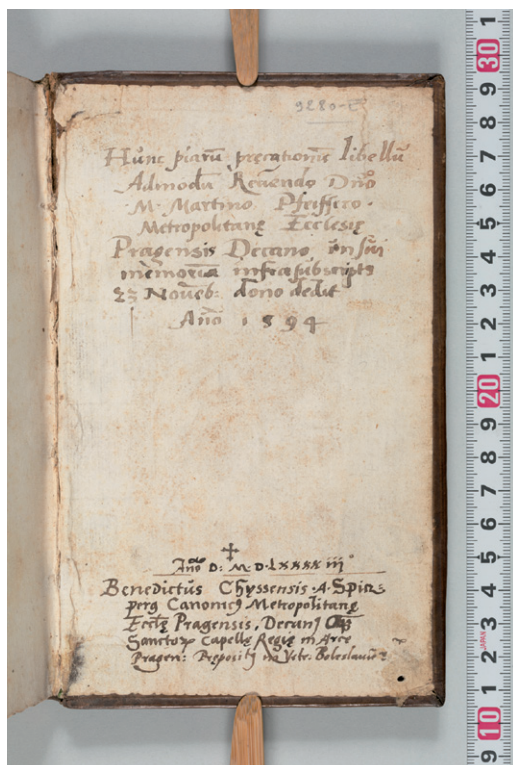 9280-E
Hunc piarū pręcationis libellū
Admodū Reūendo Dn̄o
M. Martino Pfeiffero.
Metropolitanę Ecclesię
Pragensis Decano in sūi
memoriā infrasubscripts
23 Novēb: dono dedit
Año 1594
Año D: M.D.LXXXXiii
Benedictus Chyssensis A Spicz-
perg Canonicꝯ Metropolitanę
Ecclę Pragensis, Decanꝯ
Sanctorꝝ Capellę Regię in Arce
Pragen: Prępositꝯ Vetr: Boleslauiē
30
1
20
10
JAPAN